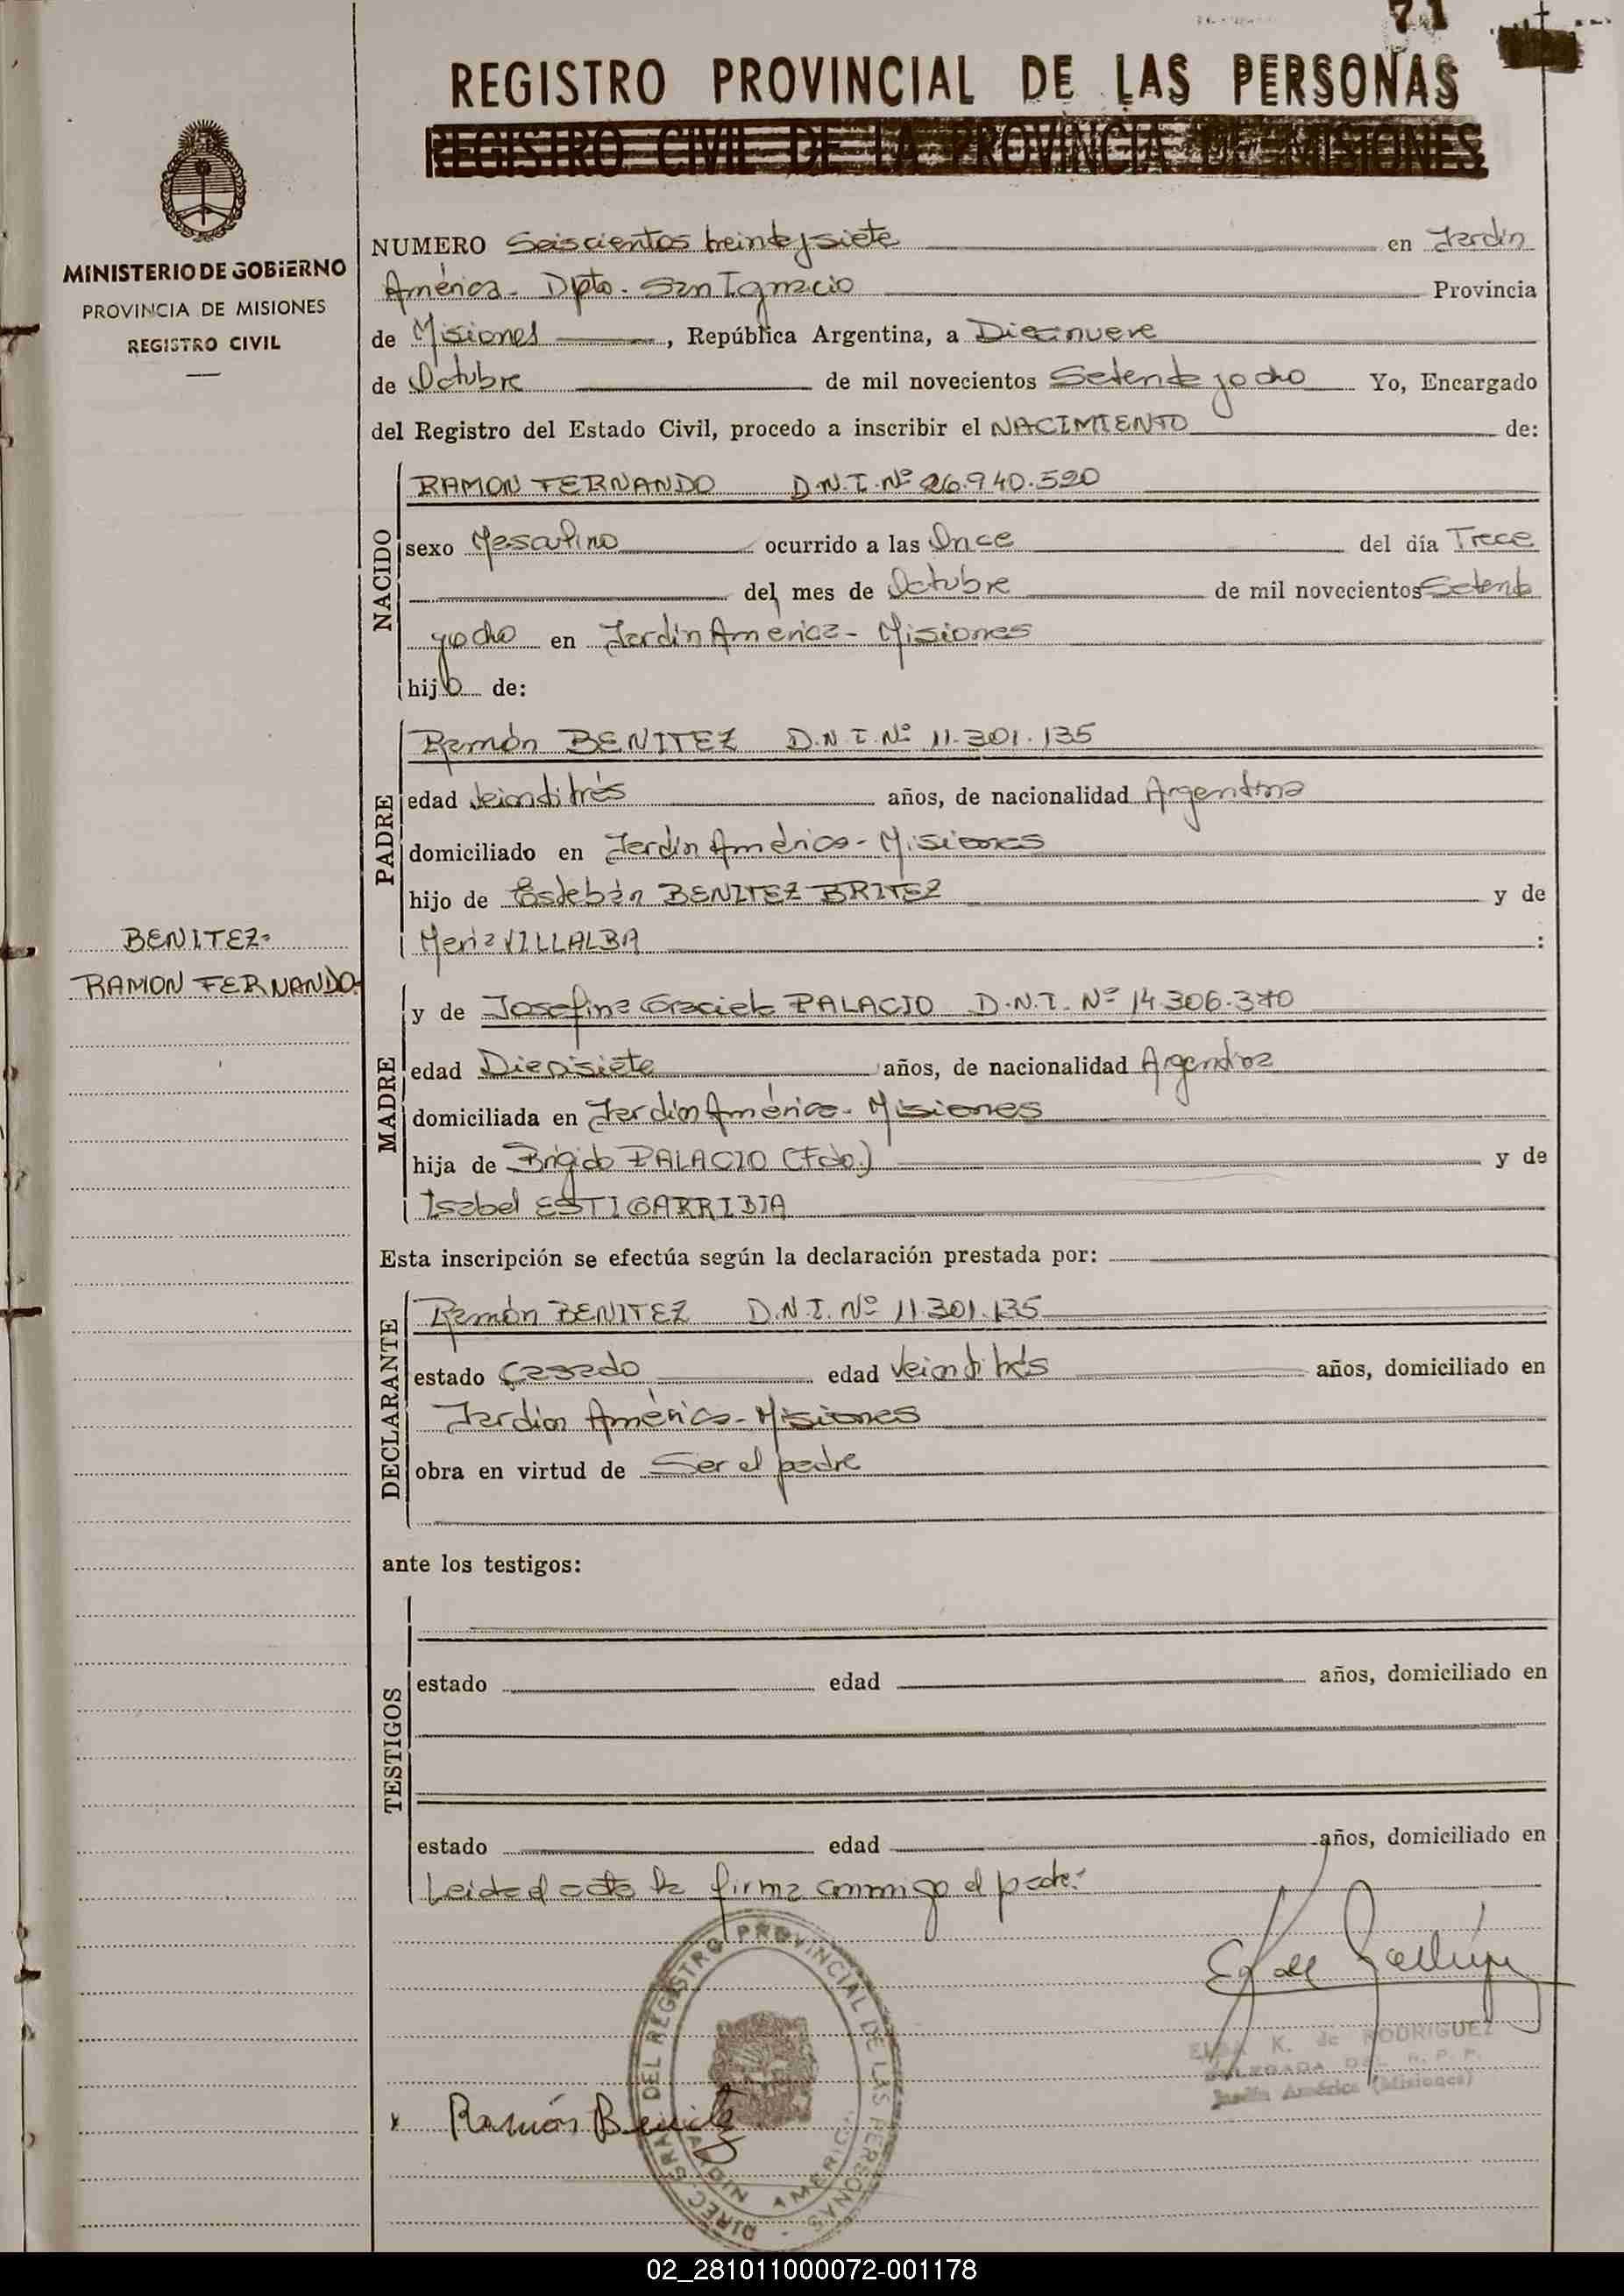 71
REGISTRO PROVINCIAL DE LAS PERSONAS
REGISTRO CIVIL DE LA PROVINCIA DE MISIONES
MINISTERIO DE GOBIERNO
PROVINCIA DE MISIONES
REGISTRO CIVIL
NUMERO Seiscientos treintaysiete en Jardín
América - Dpto. San Ignacio Provincia
de Misiones, República Argentina, a Diecinueve
de Octubre de mil novecientos Setenta y ocho Yo, Encargado
del Registro del Estado Civil, procedo a inscribir el NACIMIENTO de:
NACIDO
RAMON FERNANDO D.N.I. Nº 26.940.520
sexo Masculino ocurrido a las Once del día Trece
del mes de Octubre de mil novecientos Setenta
yocho en Jardín América - Misiones
hijo de:
PADRE
Ramón BENITEZ D.N.I. Nº 11.301.135
edad Veintitrés años, de nacionalidad Argentina
domiciliado en Jardín América - Misiones
hijo de Estebán BENITEZ BRITEZ y de
María VILLALBA :
BENITEZ-
RAMON FERNANDO.
MADRE
y de Josefina Graciela PALACIO D.N.I. Nº 14.306.370
edad Diecisiete años, de nacionalidad Argentina
domiciliada en Jardín América - Misiones
hija de Brígido PALACIO (Fdo.) y de
Isabel ESTIGARRIBIA
Esta inscripción se efectúa según la declaración prestada por:
DECLARANTE
Ramón BENITEZ D.N.I. Nº 11.301.135
estado Casado edad Veintitrés años, domiciliado en
Jardín América - Misiones
obra en virtud de Ser el padre
ante los testigos:
TESTIGOS
estado edad años, domiciliado en
estado edad años, domiciliado en
Leida el acta la firma conmigo el padre.-
ELSA K. de RODRIGUEZ
DELEGADA DEL R. P. P.
Jardín América (Misiones)
x Ramón Benitez
DIREC. GRAL. DEL REGISTRO PROVINCIAL DE LAS PERSONAS
JARDIN AMERICA
02_281011000072-001178